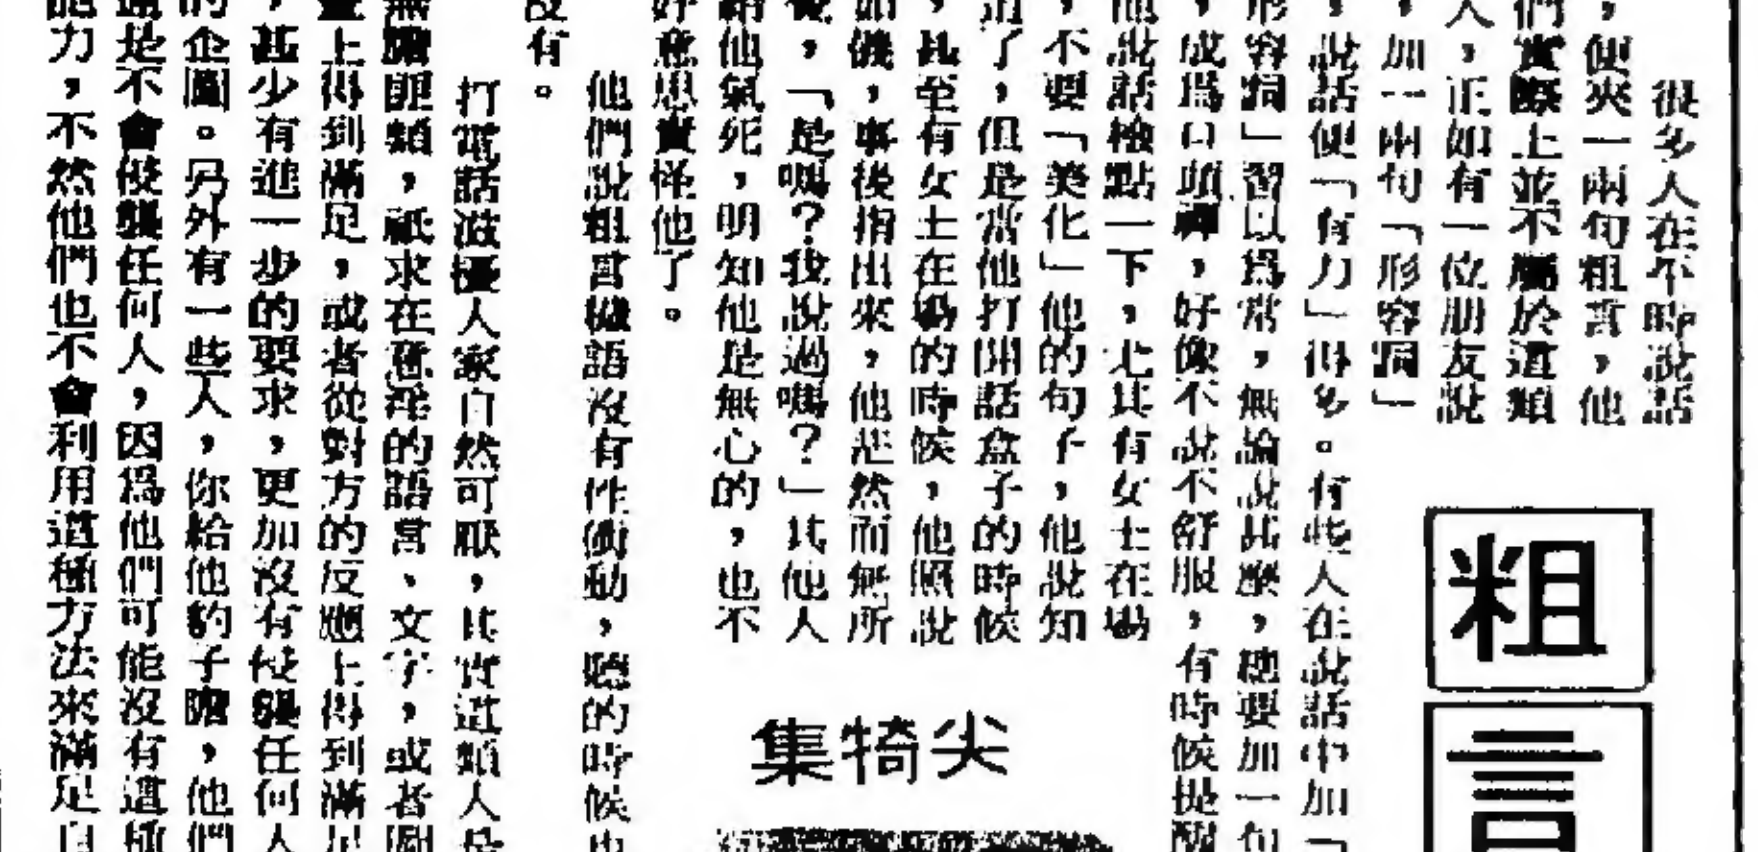 很多人在平時說話
，便夾一兩句粗言，他
們實際上並不屬於這類
人，正如有一位朋友說
，加一兩句「形容詞」
，說話便「有力」得多。有些人在說話中加「
形容詞」習以為常，無論說甚麼，總要加一句
，成為口頭禪，好像不說不舒服，有時候提醒
他說話檢點一下，尤其有女士在場
，不要「美化」他的句子，他說知
道了，但是當他打開話盒子的時候
，甚至有女士在場的時候，他照說
如儀，事後指出來，他茫然而無所
後，「是嗎？我說過嗎？」其他人
給他氣死，明知他是無心的，也不
好意思責怪他了。
他們說粗言穢語沒有性衝動，聽的時候也
沒有。
打電話滋擾人家自然可厭，其實這類人是
無膽匪類，祇求在意淫的語言、文字，或者圖
畫上得到滿足，或者從對方的反應上得到滿足
，甚少有進一步的要求，更加沒有侵襲任何人
的企圖。另外有一些人，你給他豹子膽，他們
通是不會侵襲任何人，因為他們可能沒有這種
能力，不然他們也不會利用這種方法來滿足自
粗言
尖犄集